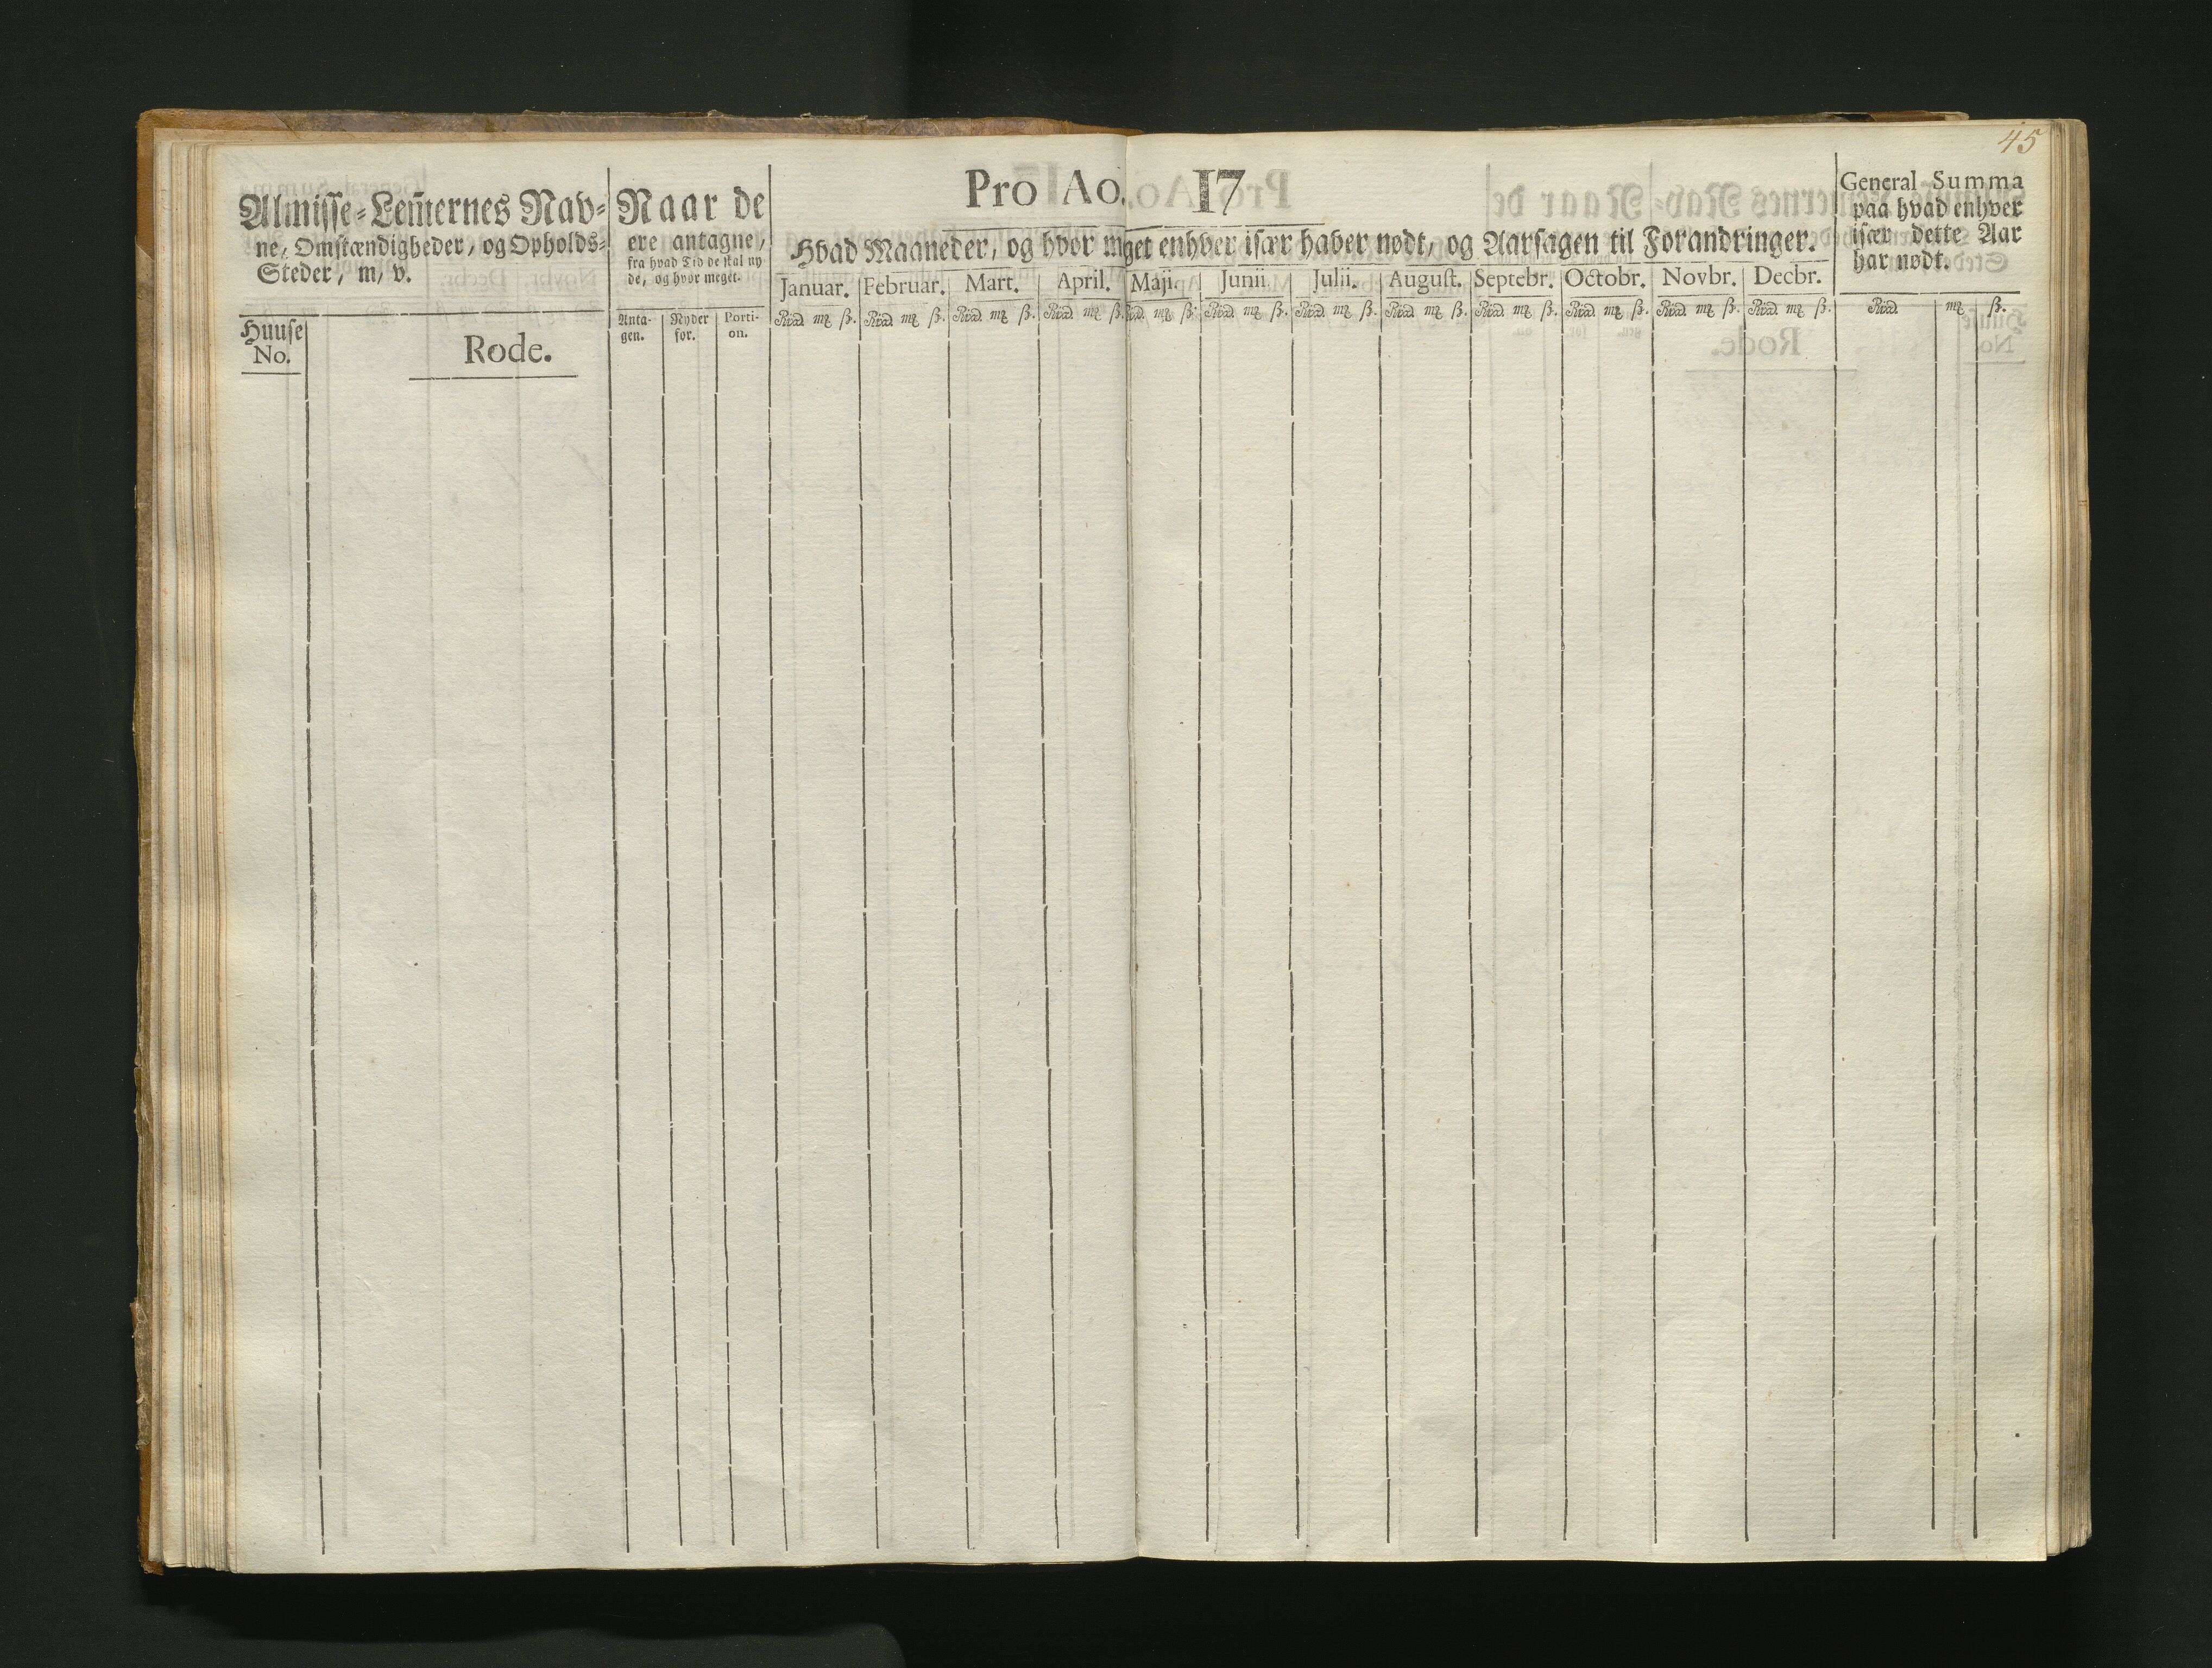 45
Pro Ao. 17
Almisse=Lem̄ernes Nav=
ne, Omstændigheder, og Opholds=
Steder, m, v.
Naar de
ere antagne,
fra hvad Tid de skal ny
de, og hvor meget.
Hvad Maaneder, og hvor meget enhver især haver nødt, og Aarsagen til Forandringer.
General Summa
paa hvad enhver
især dette Aar
har nødt.
Januar. Februar. Mart. April. Maji. Junii Julii. August. Septebr. Octobr. Novbr. Decbr.
Huuse
No.
Rode.
Anta-
gen.
Nyder
for.
Porti-
on.
Rixd mk ß. Rixd mk ß. Rixd mk ß. Rixd mk ß. Rixd mk ß. Rixd mk ß. Rixd mk ß. Rixd mk ß. Rixd mk ß. Rixd mk ß. Rixd mk ß. Rixd mk ß. Rixd mk ß.